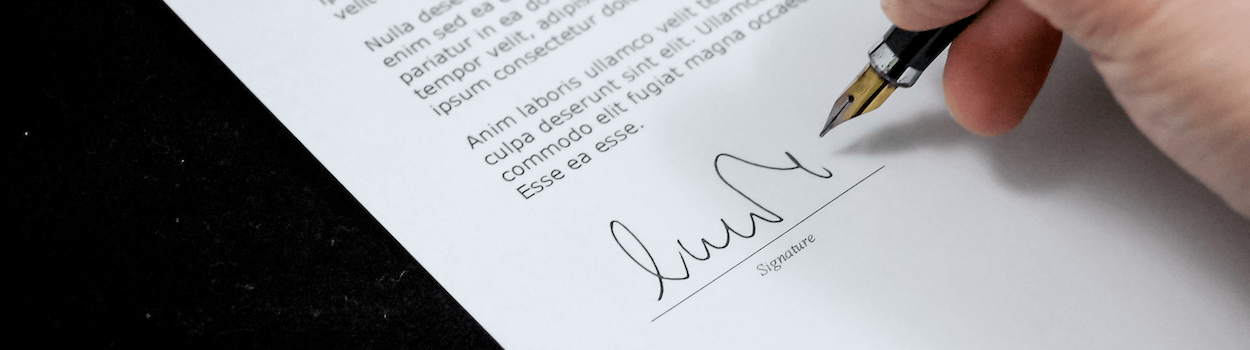 velit
Nulla dese
enim sed ea e
pariatur in ea do
tempor velit, adipis
ipsum consectetur dolo
Anim laboris ullamco velit te
culpa deserunt sint elit. Ullamco
commodo elit fugiat magna occaec
Esse ea esse.
Signature